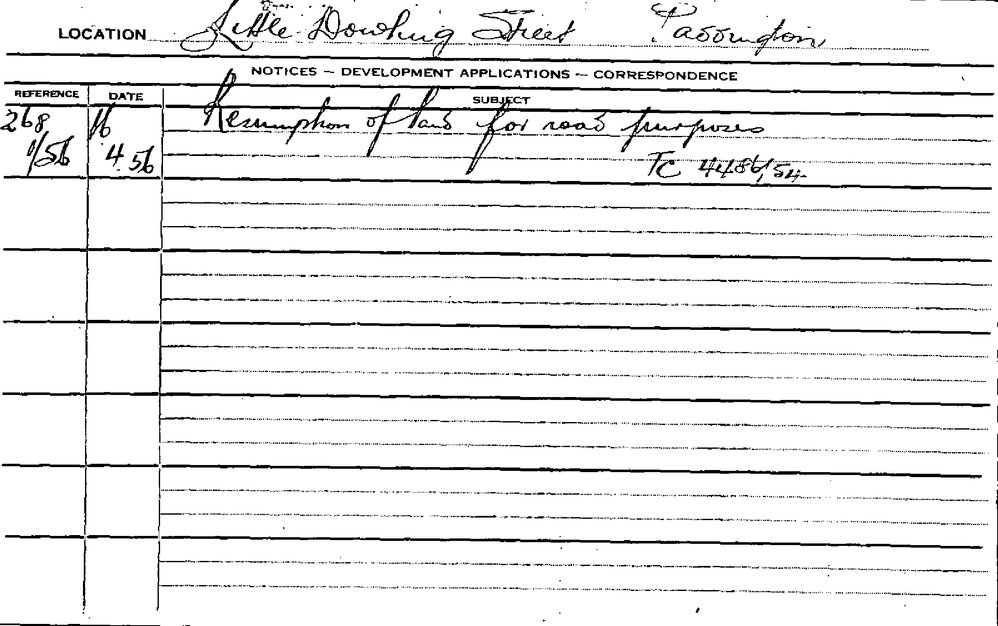 LOCATION Little Dowling Street Paddington
NOTICES – DEVELOPMENT APPLICATIONS – CORRESPONDENCE
REFERENCE DATE SUBJECT
268 16 Resumption of land for road purposes
1/56 4.56 TC 4486/54